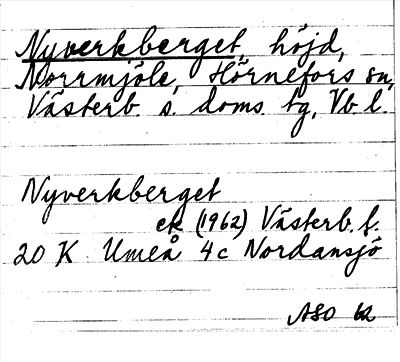 Nyverkberget, höjd,
Norrmjöle, Hörnefors sn,
Västerb. s. doms. tg, Vb. l.
Nyverkberget
ek (1962) Västerb. l.
20 K Umeå 4c Nordansjö
ASO 62